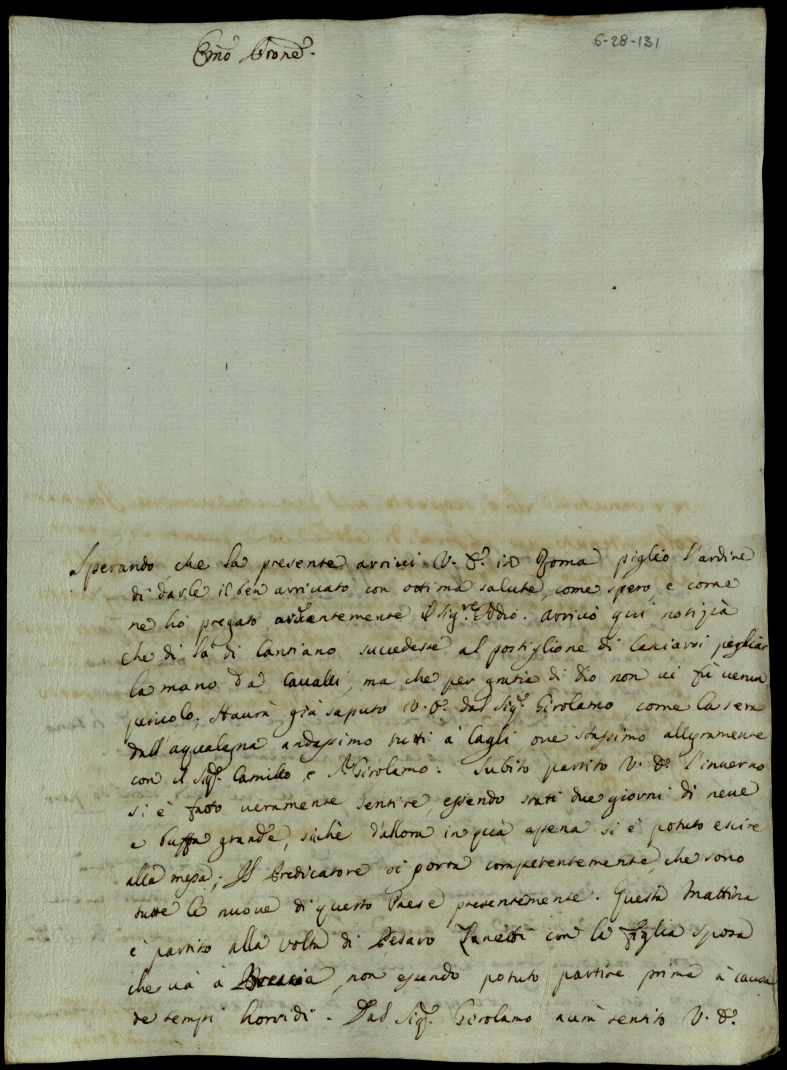 6-28-131
Sperando che la presente arrivi V. E. in Roma piglio l'ardire
di darle il ben arrivato con ottima salute, come spero, e come
ne hò pregato il Sig.re Iddio. Arrivò qui notizia
che di là di Cantiano succedesse al postiglione di lasciarsi pigliar
la mano da Cavalli, ma che per gratia di Dio non vi fù verun
pericolo; Haurà già saputo V. E. dal Sig.r Girolamo, come la sera
dall'aqualagna andassimo tutti à Cagli, ove stassimo allegramente
con il Sig.r Camillo, e S.r Girolamo. Subito partito V. E. l'inverno
si è fatto veramente sentire, essendo stati due giorni di neve
e buffa grande, sichè d'allora in quà apena si è potuto escire
alla messa; Il Predicatore si porta competentemente, che sono
tutte le nuove di questo Paese presentemente. Questa Mattina
è partito alla volta di Pesaro Zanetti con la figlia sposa
che và à Brescia, non essendo potuto partire prima à causa
de tempi horridi. Dal Sig.r Girolamo aurà sentito V. E.